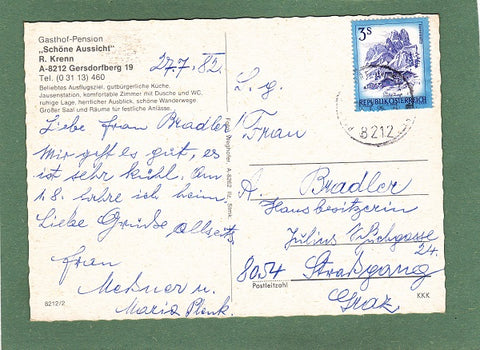 Gasthof-Pension
„Schöne Aussicht"
R. Krenn
A-8212 Gersdorfberg 19
Tel. (0 31 13) 460
Beliebtes Ausflugsziel, gutbürgerliche Küche,
Jausenstation, komfortable Zimmer mit Dusche und WC,
ruhige Lage, herrlicher Ausblick, schöne Wanderwege.
Großer Saal und Räume für festliche Anlässe.
27.7.82.
Liebe Frau Bradler
Mir geht es gut, es
ist sehr kühl. Am
1.8. fahre ich heim.
Liebe Grüße allseits
Frau
Meßner u.
Maria Plenk
8212/2
3S
REPUBLIK ÖSTERREICH
8212
L. g.
Frau
A. Bradler
Hausbesitzerin
Julius
24.
8054 Straßgang
Postleitzahl
Graz
KKK